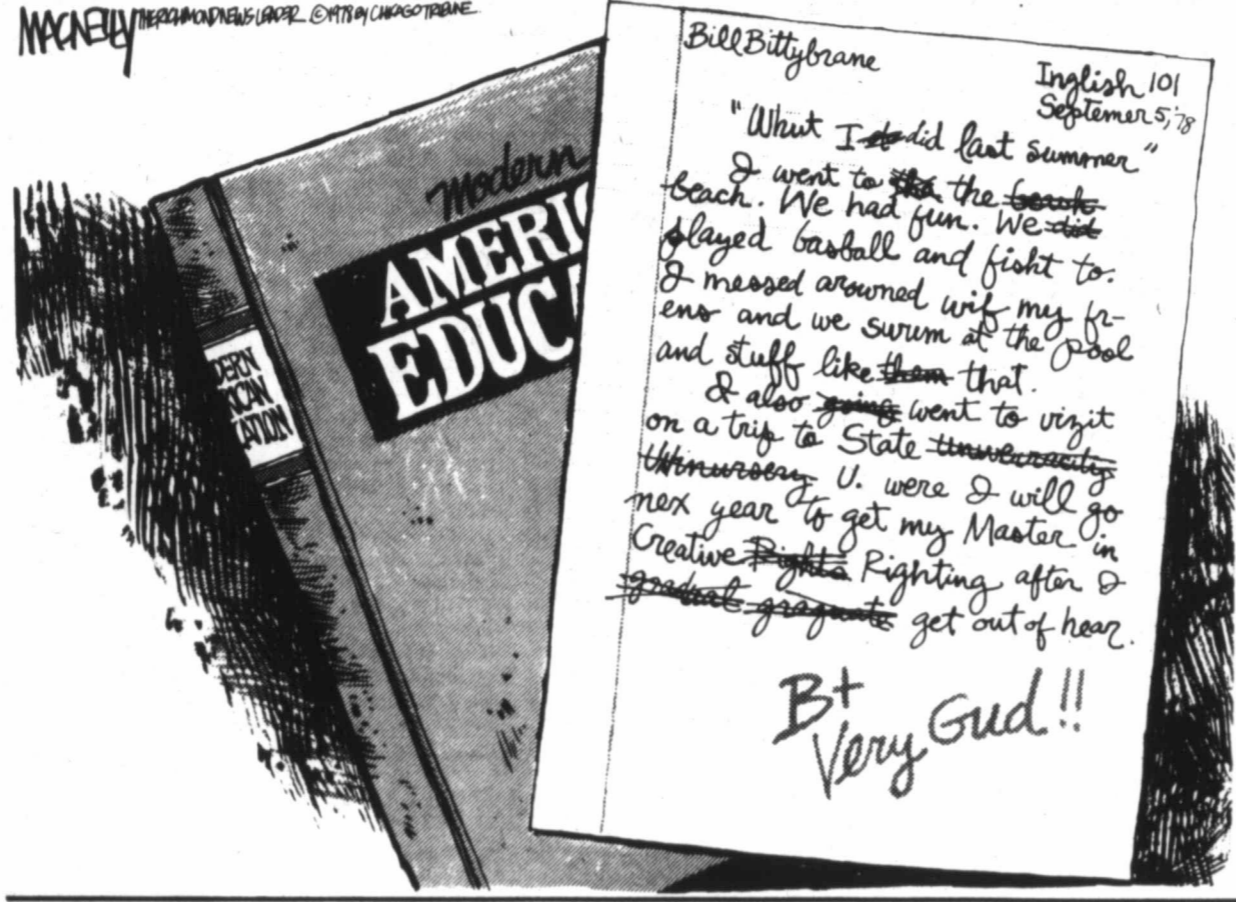 MACNELLY THE RICHMOND NEWS LEADER © 1978 BY CHICAGO TRIBUNE
Modern
AMERI
EDUCA
DERN
ICAN
CATION
Bill Bittybrane
Inglish 101
Septemer 5, '78
"Whut I do did last summer"
I went to tha the beach. We had fun. We did
played basball and fisht to.
I messed arowned wif my fr-
ens and we swum at the pool
and stuff like them that.
I also going went to vizit
on a trip to State
U. were I will go
nex year to get my Master in
Creative Rights Righting after I
gradual graguate get out of hear.
B+
Very Gud!!